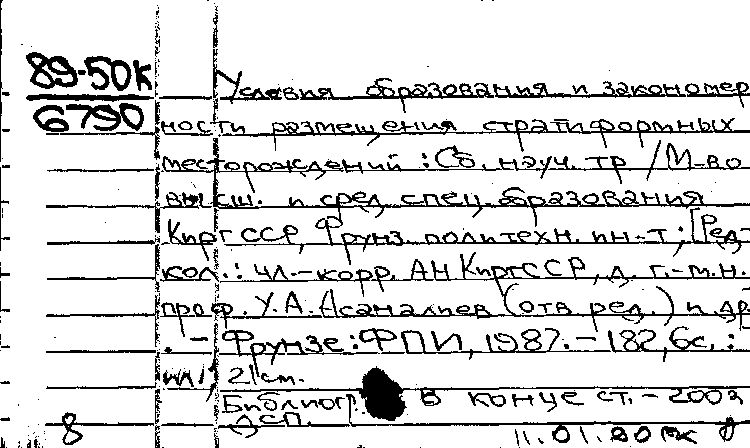 89-50к
6790
Условия образования и закономер
ности размещения стратиформных
месторождений : Сб. науч. тр / М-во
высш. и сред. спец. образования
КиргССР, Фрунз. политехн. ин-т; [Ред-
кол.: чл.-корр. АН КиргССР, д. г.-м.н.
проф. У.А. Асаналиев (отв ред.) и др
. - Фрунзе: ФПИ, 1987. - 182, 6с. :
ил; 21см.
Библиогр. в конце ст. - 200э
ДСП.
8 11.01.90